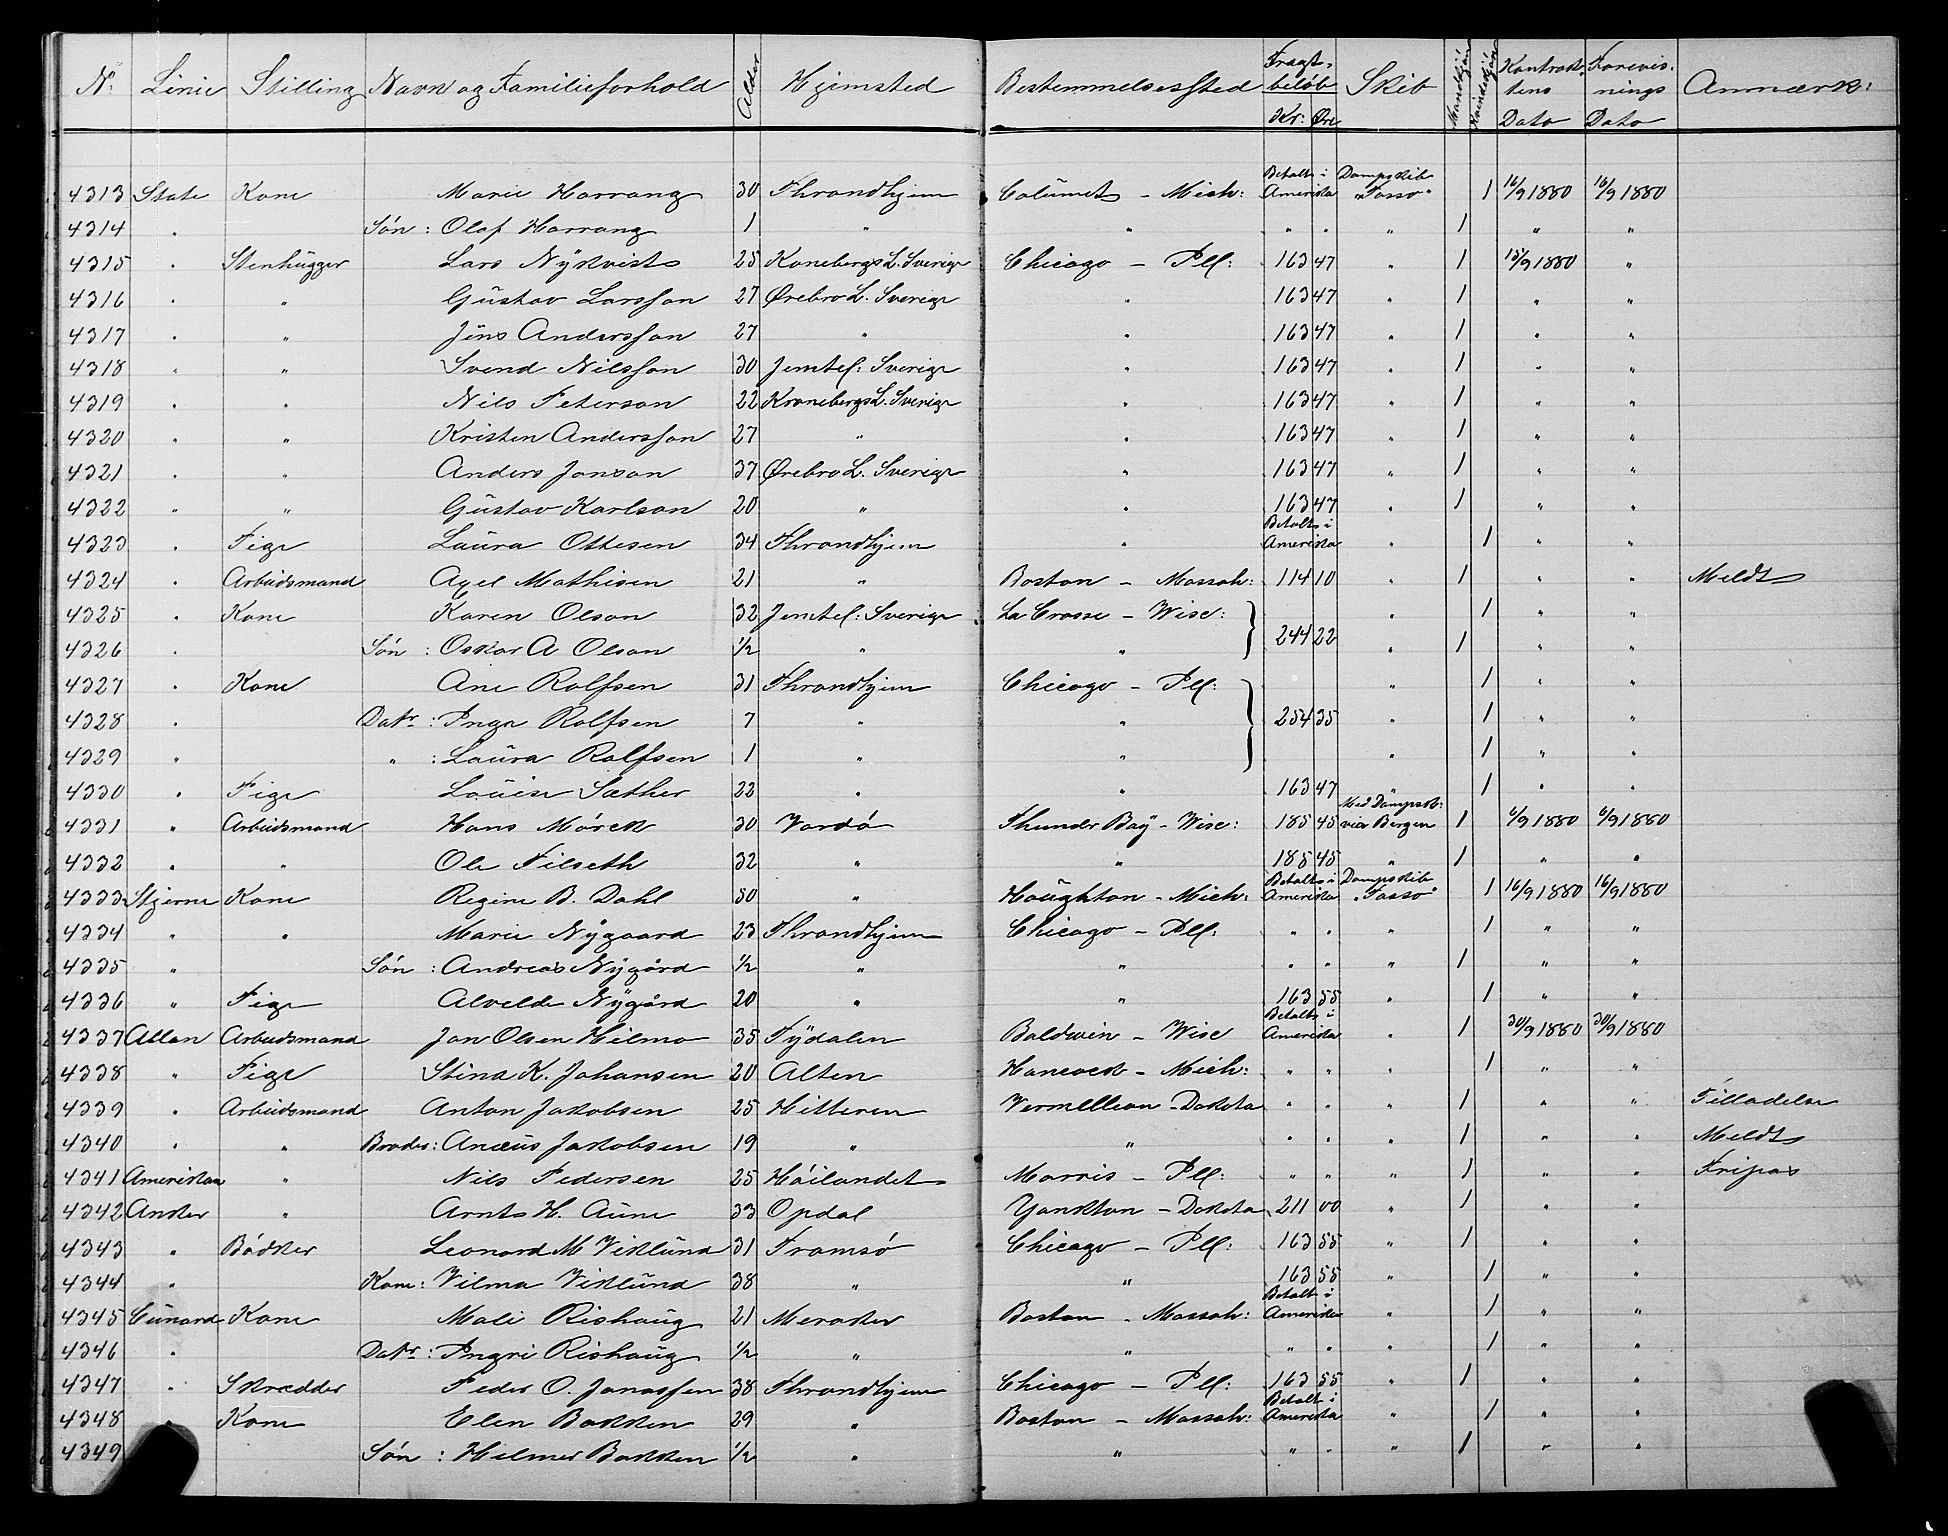 No: Linie Stilling Navn og Familieforhold Alder Hjemsted Bestemmelsessted Fragt-beløb Kr: Øre Skib Mandkjøn Kvindekjøn Kontraktens Dato Forevisnings Dato Anmærk:
4313 State Kone Marie Harrang 30 Throndhjem Calumet - Mich: Betalt i Amerika Dampskib "Tasso" 1 16/9 1880 16/9 1880
4314 " Søn: Olaf Harrang 1 " " " " " 1 " "
4315 " Stenhugger Lars Nykvist 25 Konebergs L. Sverige Chicago - Ill: 163 47 " 1 15/9 1880 "
4316 " " Gustav Larsson 27 Ørebro L. Sverige " 163 47 " 1 " "
4317 " " Jöns Andersson 27 " " 163 47 " 1 " "
4318 " " Svend Nilsson 30 Jemtel: Sverige " 163 47 " 1 " "
4319 " " Nils Peterson 22 Kronebergs L. Sverige " 163 47 " 1 " "
4320 " " Kristen Andersson 27 " " 163 47 " 1 " "
4321 " " Anders Jonson 37 Ørebro L. Sverige " 163 47 " 1 " "
4322 " " Gustav Karlson 20 " " 163 47 " 1 " "
4323 " Pige Laura Ottesen 34 Throndhjem " Betalt i Amerika " 1 " "
4324 " Arbeidsmand Axel Mathisen 21 " Boston - Massah: 114 10 " 1 " " Meldt
4325 " Kone Karen Olson 32 Jemtel: Sverige La Crosse - Wisc: " 1 " "
4326 " Søn: Oskar A Olson 1/2 " " 244 22 1 " "
4327 " Kone Ane Rolfsen 31 Throndhjem Chicago - Ill: " 1 " "
4328 " Datr: Inga Rolfsen 7 " " 254 35 " 1 " "
4329 " " : Laura Rolfsen 1 " " " 1 " "
4330 " Pige Louise Sæther 22 " " 163 47 " 1 " "
4331 " Arbeidsmand Hans Mörck 30 Vardø Thunder Bay - Wisc: 185 45 Med Dampsk: via Bergen 1 6/9 1880 6/9 1880
4332 " " Ole Filseth 32 " " 185 45 " 1 " "
4333 Stjerne Kone Regine B. Dahl 50 " Houghton - Mich: Betalt i Amerika Dampskib "Tasso" 1 16/9 1880 16/9 1880
4334 " " Marie Nygaard 23 Throndhjem Chicago - Ill: " " " 1 " "
4335 " Søn: Andreas Nygård 1/2 " " " " " 1 " "
4336 " Pige Alvelde Nygård 20 " " 163 55 " 1 " "
4337 Allan Arbeidsmand Jon Olsen Hilmo 35 Tydalen Baldwin - Wisc Betalt i Amerika " 1 30/9 1880 30/9 1880
4338 " Pige Stina K. Johansen 20 Alten Hancock - Mich: " " " 1 " "
4339 " Arbeidsmand Anton Jakobsen 25 Hitteren Vermelleon - Dakota " " " 1 " " Tilladelse
4340 " " Broder: Anæus Jakobsen 19 " " " " " 1 " " Meldt
4341 Amerikan " Nils Pedersen 25 Høilandet Morris - Ill: " " " 1 " " Fripas
4342 Anker " Arnt H. Aune 33 Opdal Yankton - Dakota 211 00 " 1 " "
4343 " Bødker Leonard M Viklund 31 Tromsø Chicago - Ill: 163 55 " 1 " "
4344 " Kone: Vilma Viklund 38 " " 163 55 " 1 " "
4345 Cunard Kone Mali Rishaug 21 Meraker Boston - Massah: Betalt i Amerika " 1 " "
4346 " Datr: Ingri Rishaug 1/2 " " " " " 1 " "
4347 " Skrædder Peder O. Jonassen 38 Throndhjem Chicago - Ill: 163 55 " 1 " "
4348 " Kone Elen Bakken 29 " Boston - Massah: Betalt i Amerika " 1 " "
4349 Søn: Hilmer Bakken 1/2 " " " " " 1 " "